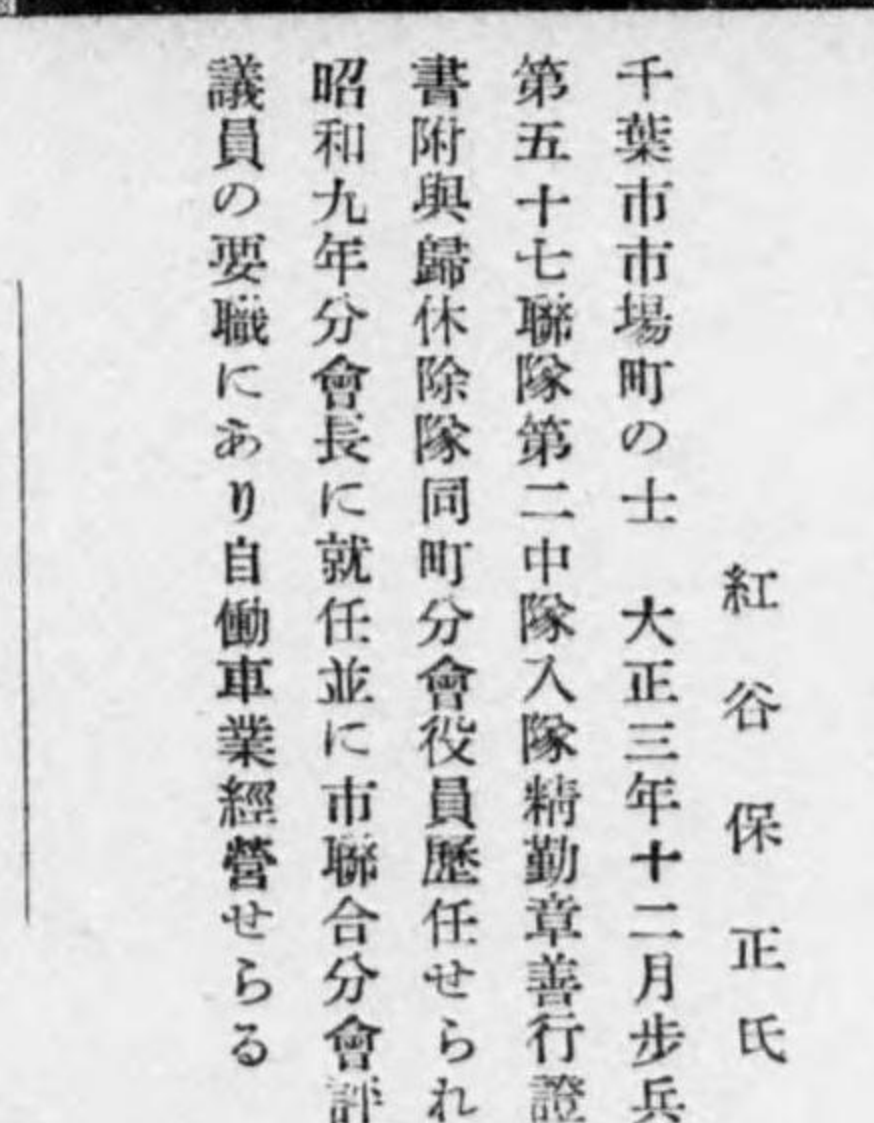 紅谷保正氏
千葉市市場町の士　大正三年十二月步兵
第五十七聯隊第二中隊入隊精勤章善行證
書附與歸休除隊同町分會役員歷任せられ
昭和九年分會長に就任並に市聯合分會評
議員の要職にあり自働車業經營せらる